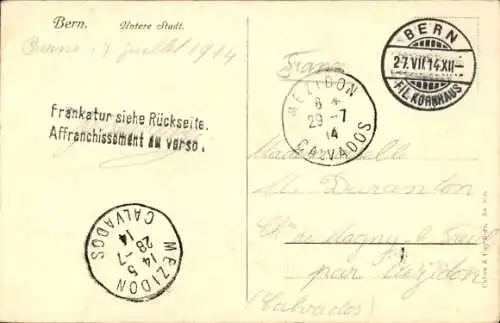 Bern. Untere Stadt.
Berne 7 juillet 1914
France
BERN
27.VII.14.XII-
FIL. KORNHAUS
MEZIDON
6 *
29 -7
14
CALVADOS
Frankatur siehe Rückseite.
Affranchissement au verso.
Mademoiselle
M. Duranton
Ch de Magny
par Mézidon
(Calvados)
MEZIDON
14 5
28 -7
14
CALVADOS